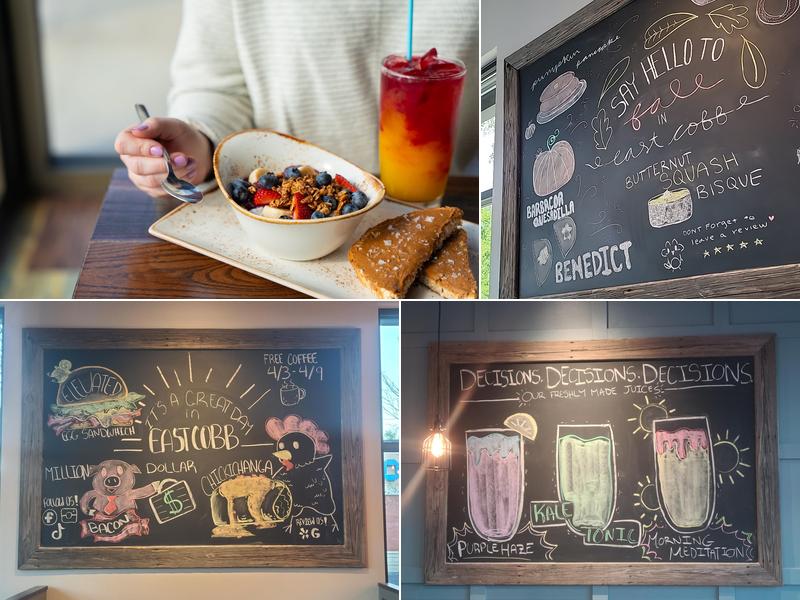 pumpkin pancake
SAY HELLO TO
fall
IN
east cobb
BUTTERNUT
SQUASH
BISQUE
BARBACOA
QUESADILLA
BENEDICT
DONT FORGET to
leave a review
ELEVATED
EGG SANDWHICH
FREE COFFEE
4/3-4/9
IT'S A GREAT DAY
in
EAST COBB
MILLION DOLLAR
BACON
$
CHICICHANGA
FOLLOW US!
REVIEW US!
G
DECISIONS. DECISIONS. DECISIONS.
OUR FRESHLY MADE JUICES!
PURPLE HAZE
KALE
TONIC
MORNING
MEDITATION